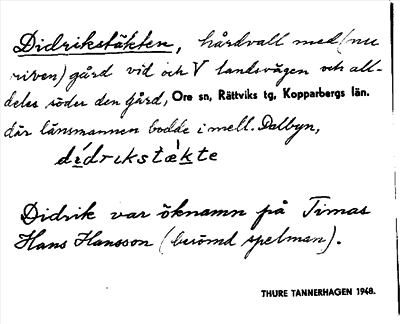 Didrikstäkten, hårdvall med (nu
riven) gård vid och V landsvägen och all-
deles söder den gård, Ore sn, Rättviks tg, Kopparbergs län.
där länsmannen bodde i mell. Dalbyn,
dídrɩkstæ̀kte
Didrik var öknamn på Timas
Hans Hansson (berömd spelman).
THURE TANNERHAGEN 1948.